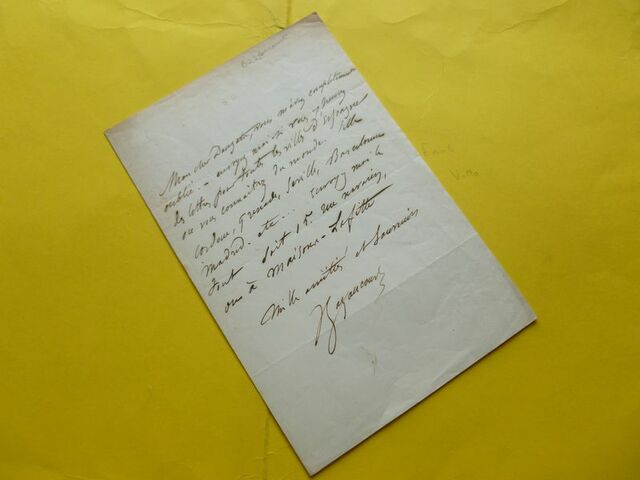 Mon cher Dauzats, vous m'avez complètement
oublié. - envoyez moi si vous pouvez
des lettres pour toutes les villes d'Espagne
où vous connaîtrez du monde.
Cordoue, Grenade, Séville, Barcelonne
Madrid. etc... envoyez moi le
tout soit 15. rue
ou à Maisons-Lafitte
Mille amitiés et souvenirs